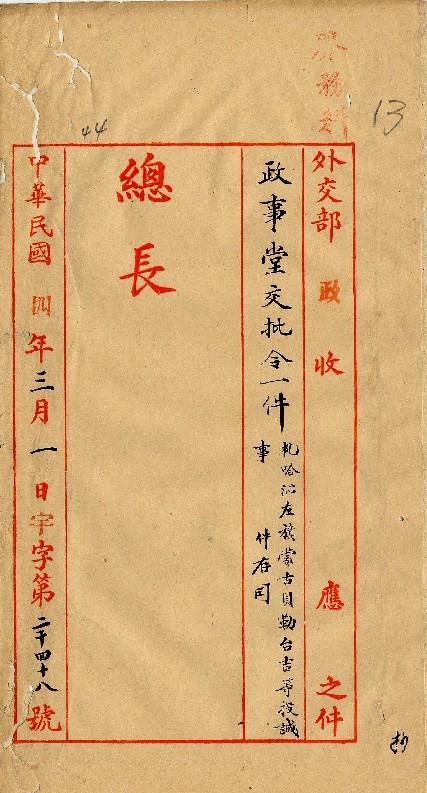 13
44
外交部 政 收 應 之件
政事堂交批令一件
札哈沁左旗蒙古貝勒台吉等投誠
事 件存司
總長
中華民國 四 年 三 月 一 日 宇字第 二千四十八 號
抄